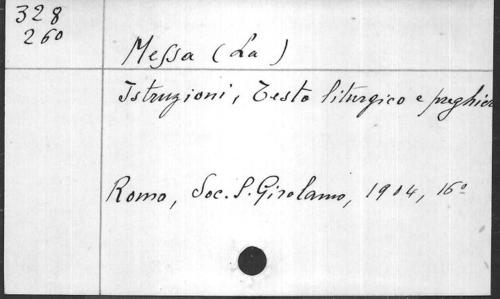 328
260
Messa (La)
Istruzioni, Testo liturgico e preghier
Roma, Soc. S. Girolamo, 1904, 16º